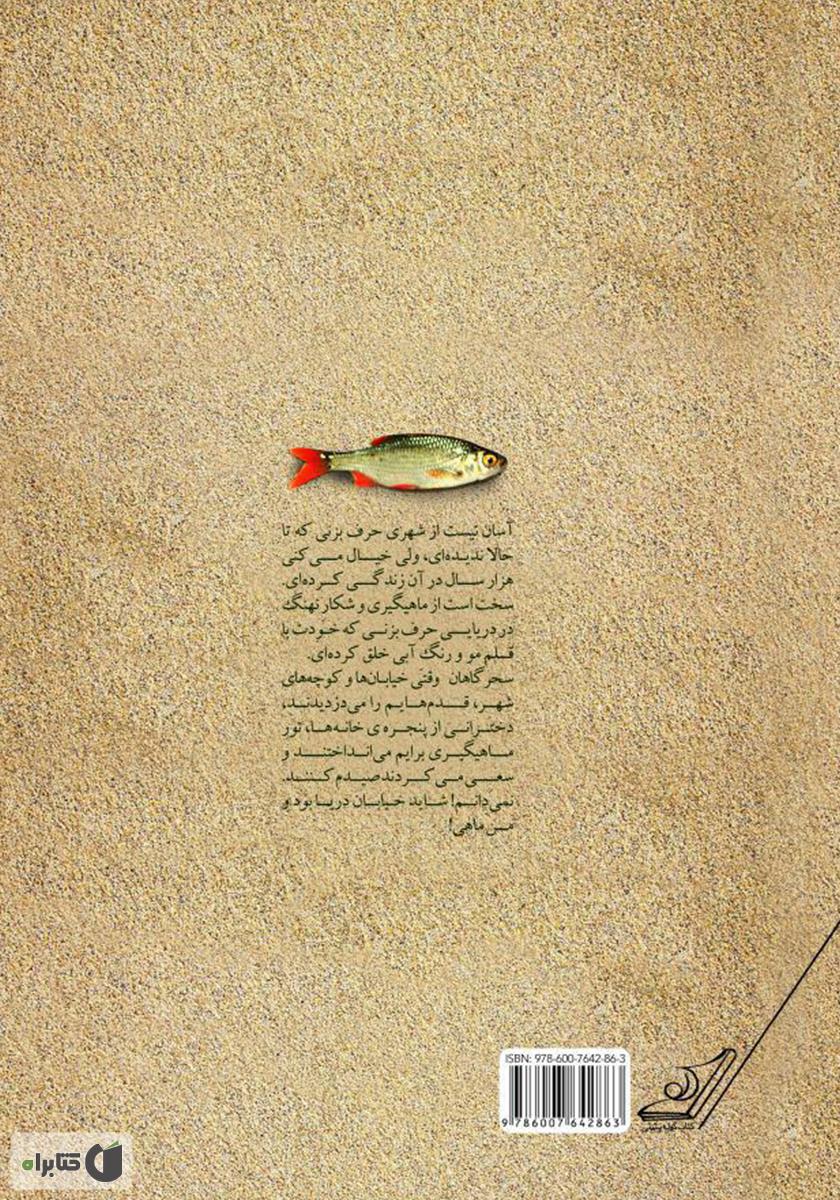 آسان نیست از شهری حرف بزنی که تا
حالا ندیده‌ای، ولی خیال می‌کنی
هزار سال در آن زندگی کرده‌ای.
سخت است از ماهیگیری و شکار نهنگ
در دریایی حرف بزنی که خودت با
قلم مو و رنگ آبی خلق کرده‌ای.
سحرگاهان وقتی خیابان‌ها و کوچه‌های
شهر، قدم‌هایم را می‌دزدیدند،
دخترانی از پنجره ی خانه‌ها، تور
ماهیگیری برایم می‌انداختند و
سعی می‌کردند صیدم کنند.
نمی‌دانم! شاید خیابان دریا بود و
من ماهی!
ISBN: 978-600-7642-86-3
9 786007 642863
کتاب کوله پشتی
کتابراه